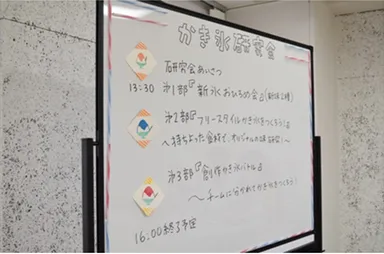 かき氷研究会
研究会あいさつ
13:30 第1部『新氷おひろめ会』(新味2種)
第2部『フリースタイルかき氷をつくろう!』
〜持ちよった食材で、オリジナルの味研究〜
第3部『創作かき氷バトル』
〜チームに分かれてかき氷をつくろう!
16:00 終了予定